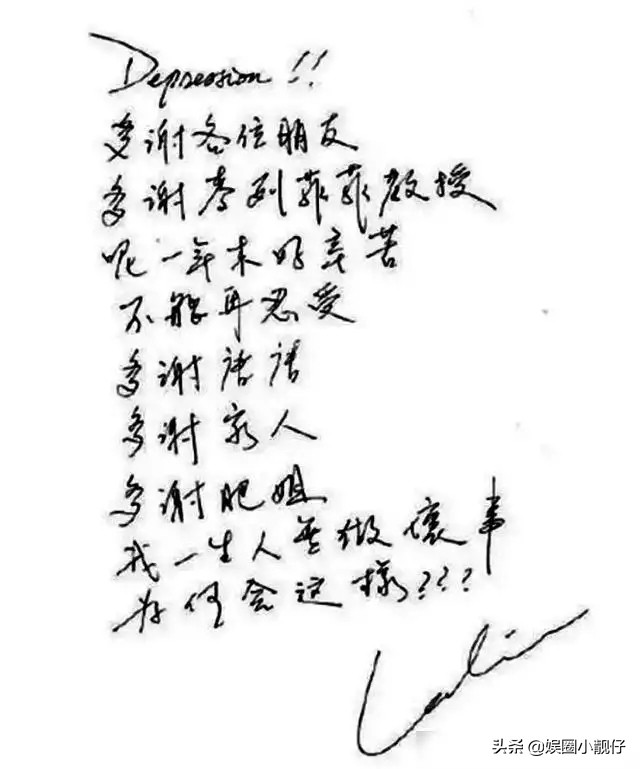 Depression!!
多谢各位朋友
多谢麦列菲菲教授
呢一年来好辛苦
不能再忍受
多谢唐唐
多谢家人
多谢肥姐
我一生人无做坏事
为何会这样???
Leslie
头条 @娱圈小靓仔